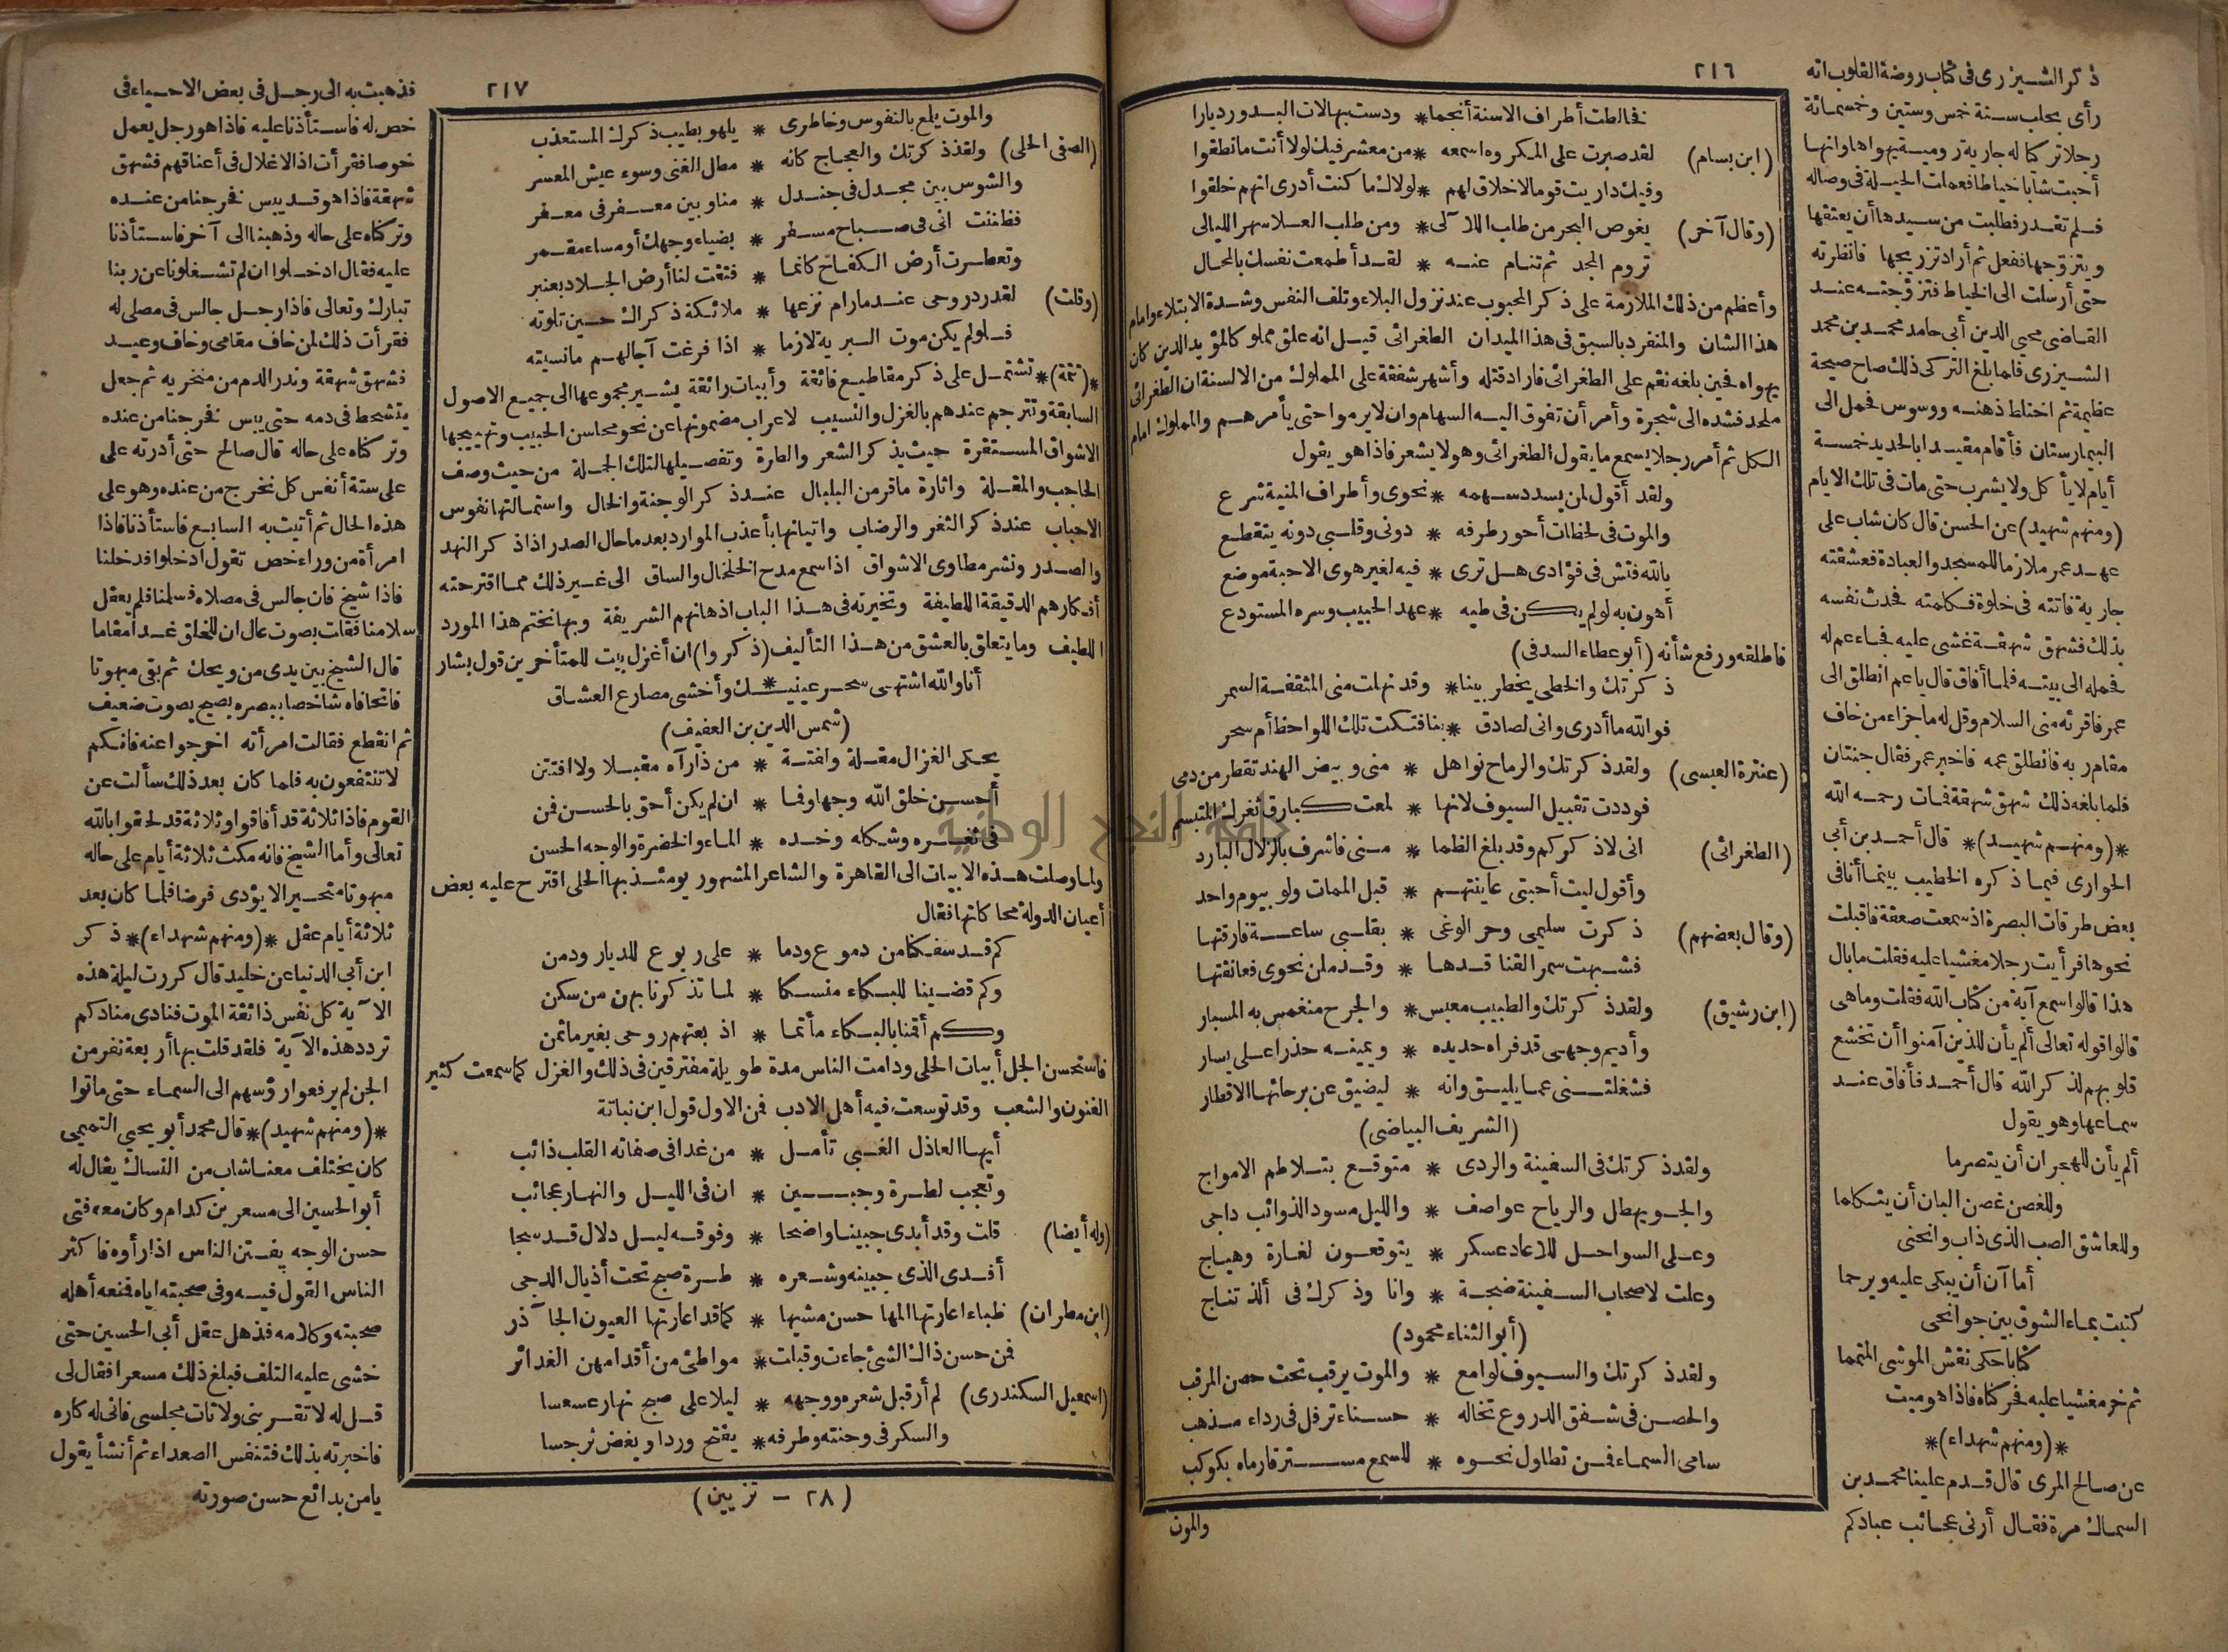 ٢١٦
فخالطت أطراف الاسنة أنجما * ودست بهالات البدور ديارا
(ابن بسام) لقد صبرت على المكروه اسمعه * من معشر فيك لولا أنت ما نطقوا
وفيك داريت قوما لا خلاق لهم * لولاك ما كنت أدرى انهم خلقوا
(وقال آخر) يغوص البحر من طلب اللآلى * ومن طلب العلا سهر الليالى
تروم المجد ثم تنام عنه * لقد أطمعت نفسك بالمحال
وأعظم من ذلك الملازمة على ذكر المحبوب عند نزول البلاء وتلف النفس وشدة الابتلاء وامام
هذا الشان والمتفرد بالسبق فى هذا الميدان الطغرائى قيل انه علق مملو كالمؤيد الدين كان
يهواه فحين بلغه نقم على الطغرائى فاراد قتله وأشهر شفقة على المملوك من الالسنة ان الطغرائى
ملحد فشده الى شجرة وأمر أن تفوق اليه السهام وان لا يرموا حتى يأمرهم والمملوك امام
الكل ثم أمر رجلا يسمع ما يقول الطغرائى وهو لا يشعر فاذا هو يقول
ولقد أقول لمن يسدد سهمه * نحوى وأطراف المنية شرع
والموت فى لحظات أحور طرفه * دونى وقلبى دونه يتقطع
بالله فتش فى فؤادى هل ترى * فيه لغير هوى الاحبة موضع
أهون به لو لم يكن فى طيه * عهد الحبيب وسره المستودع
فاطلقه ورفع شأنه (أبو عطاء السدفى)
ذكرتك والخطى يخطر بيننا * وقد نهلت منى المثقفة السمر
فوالله ما أدرى وانى لصادق * بنا فتكت تلك اللواحظ أم سحر
(عنترة العبسى) ولقد ذكرتك والرماح نواهل * منى وبيض الهند تقطر من دمى
فوددت تقبيل السيوف لانها * لمعت كبارق ثغرك المتبسم
(الطغرائى) انى لاذكركم وقد بلغ الظما * منى فاشرق بالزلال البارد
وأقول ليت أحبتى عاينتهم * قبل الممات ولو بيوم واحد
(وقال بعضهم) ذكرت سليمى وحر الوغى * بقلبى ساعة فارقتها
فشبهت سمر القنا قدها * وقد ملن نحوى فعانقتها
(ابن رشيق) ولقد ذكرتك والطبيب معبس * والجرح منغمس به المسبار
وأديم وجهى قد فراه حديده * ويمينه حذرا على يسار
فشغلتنى عما يليق وانه * ليضيق عن برحائها الاقطار
(الشريف البياضى)
ولقد ذكرتك فى السفينة والردى * متوقع بتلاطم الامواج
والجو يهطل والرياح عواصف * والليل مسود الذوائب داجى
وعلى السواحل للاعاد عسكر * يتوقعون لغارة وهياج
وعلت لاصحاب السفينة ضجة * وانا وذكرك فى ألذ تناج
(أبو الثناء محمود)
ولقد ذكرتك والسيوف لوامع * والموت يرقب تحت حصن المرقب
والحصن فى شفق الدروع تخاله * حسناء ترفل فى رداء مذهب
سامى السماء فمن تطاول نحوه * للسمع مسترقا رماه بكوكب
والموت
ذكر الشيزرى فى كتاب روضة القلوب انه
رأى بحلب سنة خمس وستين وخمسمائة
رجلا تركيا له جارية رومية يهواها وانها
أحبت شابا خياطا فعملت الحيلة فى وصاله
فلم تقدر فطلبت من سيدها أن يعتقها
ويتزوجها ففعل ثم أراد تزويجها فانظرته
حتى أرسلت الى الخياط فتزوجته عند
القاضى محيي الدين أبى حامد محمد بن محمد
الشيزرى فلما بلغ التركى ذلك صاح صيحة
عظيمة ثم اختلط ذهنه ووسوس فحمل الى
البيمارستان فأقام مقيدا بالحديد خمسة
أيام لا يأكل ولا يشرب حتى مات فى تلك الايام
(ومنهم شهيد) عن الحسن قال كان شاب على
عهد عمر ملازما للمسجد والعبادة فعشقته
جارية فاتته فى خلوة فكلمته فحدث نفسه
بذلك فشهق شهقة غشى عليه فجاء عم له
فحمله الى بيته فلما أفاق قال ياعم انطلق الى
عمر فاقرئه منى السلام وقل له ما جزاء من خاف
مقام ربه فانطلق عمه فاخبر عمر فقال جنتان
فلما بلغه ذلك شهق شهقة فمات رحمه الله
*(ومنهم شهيد)* قال أحمد بن أبى
الحوارى فيما ذكره الخطيب بينما أنا فى
بعض طرقات البصرة اذ سمعت صعقة فاقبلت
نحوها فرأيت رجلا مغشيا عليه فقلت ما بال
هذا قالوا سمع آية من كتاب الله فقلت وما هى
قالوا قوله تعالى ألم يأن للذين آمنوا أن تخشع
قلوبهم لذكر الله قال أحمد فأفاق عند
سماعها وهو يقول
ألم يأن للهجران أن يتصرما
وللغصن غصن البان أن يتكلما
وللعاشق الصب الذى ذاب وانحنى
أما آن أن يبكى عليه ويرحما
كتبت بماء الشوق بين جوانحى
كتابا حكى نقش الموشى المنمنما
ثم خر مغشيا عليه فحركناه فاذا هو ميت
*(ومنهم شهداء)*
عن صالح المرى قال قدم علينا محمد بن
السماك مرة فقال أرنى عجائب عبادكم
٢١٧
والموت يلعب بالنفوس وخاطرى * يلهو بطيب ذكرك المستعذب
(الصفى الحلى) ولقد ذكرتك والعجاج كانه * مطل الغنى وسوء عيش المعسر
والشوس بين مجدل فى جندل * منا وبين معفر فى معفر
فظننت انى فى صباح مسفر * بضياء وجهك أو مساء مقمر
وتعطرت أرض الكفاح كانما * فتقت لنا أرض الجلاد بعنبر
(وقلت) لقد در وحى عند ما رام نزعها * ملائكة ذكراك حين تلوته
فلو لم يكن موت البرية لازما * اذا فرغت آجالهم مانسيته
*(تتمة)* تشتمل على ذكر مقاطيع فائقة وأبيات رائقة يشير مجموعها الى جميع الاصول
السابقة وتترجم عندهم بالغزل والنسيب لاعراب مضمونها عن نحو محاسن الحبيب وتهييجها
الاشواق المستقرة حيث يذكر الشعر والطرة وتفصيلها لتلك الجملة من حيث وصف
الحاجب والمقلة واثارة ماقر من البلبال عند ذكر الوجنة والخال واستمالتها نفوس
الاحباب عند ذكر الثغر والرضاب واتيانها بأعذب الموارد بعد ما حال الصدر اذا ذكر النهد
والصدر ونشر مطاوى الاشواق اذا سمع مدح الخلخال والساق الى غير ذلك مما اقترحته
أفكارهم الدقيقة اللطيفة وتخيرته فى هذا الباب اذهانهم الشريفة وبها نختم هذا المورد
اللطيف وما يتعلق بالعشق من هذا التأليف (ذكروا) ان أغزل بيت للمتأخرين قول بشار
أنا والله اشتهى سحر عينيـ * ـك وأخشى مصارع العشاق
(شمس الدين بن العفيف)
يحكى الغزال مقلة ولفتة * من ذا رآه مقبلا ولا افتتن
أحسن خلق الله وجها وفما * ان لم يكن أحق بالحسن فمن
فى ثغره وشكله وخده * الماء والخضرة والوجه الحسن
ولما وصلت هذه الابيات الى القاهرة والشاعر المشهور يومئذ بها الحلى اقترح عليه بعض
أعيان الدولة محاكاتها فقال
كم قد سفكنا من دموع ودما * على ربوع للديار ودمن
وكم قضينا للبكاء منسكا * لما تذكرنا بهن من سكن
وكم أقمنا بالبكاء مأتما * اذ بعتهم روحى بغير ما ثمن
فاستحسن الجل أبيات الحلى ودامت الناس مدة طويلة مفترقين فى ذلك والغزل كما سمعت كثير
الفنون والشعب وقد توسعت فيه أهل الادب فمن الاول قول ابن نباتة
أيها العاذل الغبى تأمل * من غدا فى صفاته القلب ذائب
وتعجب لطرة وجبين * ان فى الليل والنهار عجائب
(وله أيضا) قلت وقد أبدى جبينا واضحا * وفوقه ليل دلال قد سجا
أفدى الذى جبينه وشعره * طرة صبح تحت أذيال الدجى
(ابن مطران) ظباء اعارتها المها حسن مشيها * كما قد اعارتها العيون الجآذر
فمن حسن ذاك الشئ جاءت وقبلت * مواطئ من أقدامهن الغدائر
(اسمعيل السكندرى) لم أر قبل شعره ووجهه * ليلا على صبح نهار عسعسا
والسكر فى وجنته وطرفه * يفتح وردا ويغض نرجسا
(٢٨ - تزيين)
فذهبت به الى رجل فى بعض الاحياء فى
خص له فاستأذنا عليه فاذا هو رجل يعمل
خوصا فقرأت اذ الاغلال فى أعناقهم فشهق
شهقة فاذا هو قد يبس فخرجنا من عنده
وتركناه على حاله وذهبنا الى آخر فاستأذنا
عليه فقال ادخلوا ان لم تشغلونا عن ربنا
تبارك وتعالى فاذا رجل جالس فى مصلى له
فقرأت ذلك لمن خاف مقامى وخاف وعيد
فشهق شهقة وندر الدم من منخريه ثم جعل
يتشحط فى دمه حتى يبس فخرجنا من عنده
وتركناه على حاله قال صالح حتى أدرته على
على ستة أنفس كل نخرج من عنده وهو على
هذه الحال ثم أتيت به السابع فاستأذنا فاذا
امرأة من وراء خص تقول ادخلوا فدخلنا
فاذا شيخ فان جالس فى مصلاه فسلمنا فلم يعقل
سلامنا فقلت بصوت عال ان للخلق غدا مقاما
قال الشيخ بين يدى من ويحك ثم بقى مبهوتا
فاتحا فاه شاخصا ببصره يصيح بصوت ضعيف
ثم انقطع فقالت امرأته اخرجوا عنه فانكم
لا تنتفعون به فلما كان بعد ذلك سألت عن
القوم فاذا ثلاثة قد أفاقوا وثلاثة قد لحقوا بالله
تعالى وأما الشيخ فانه مكث ثلاثة أيام على حاله
مبهوتا متحيرا لا يؤدى فرضا فلما كان بعد
ثلاثة أيام عقل *(ومنهم شهداء)* ذكر
ابن أبى الدنيا عن خليد قال كررت ليلة هذه
الآية كل نفس ذائقة الموت فنادى مناد كم
تردد هذه الآية فلقد قلت بها أربعة نفر من
الجن لم يرفعوا رؤسهم الى السماء حتى ماتوا
*(ومنهم شهيد)* قال محمد أبو يحيي التميمى
كان يختلف معنا شاب من النساك يقال له
أبو الحسين الى مسعر بن كدام وكان معه فتى
حسن الوجه يفتتن الناس اذا رأوه فاكثر
الناس القول فيه وفى صحبته اياه فمنعه أهله
صحبته وكلامه فذهل عقل أبى الحسين حتى
خشى عليه التلف فبلغ ذلك مسعرا فقال لى
قل له لا تقربنى ولا تأت مجلسى فانى له كاره
فاخبرته بذلك فتنفس الصعداء ثم أنشأ يقول
يا من بدائع حسن صورته
جامعة النجاح الوطنية